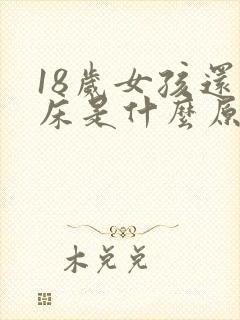 18歲女孩還
床是什麼原
木兌兌